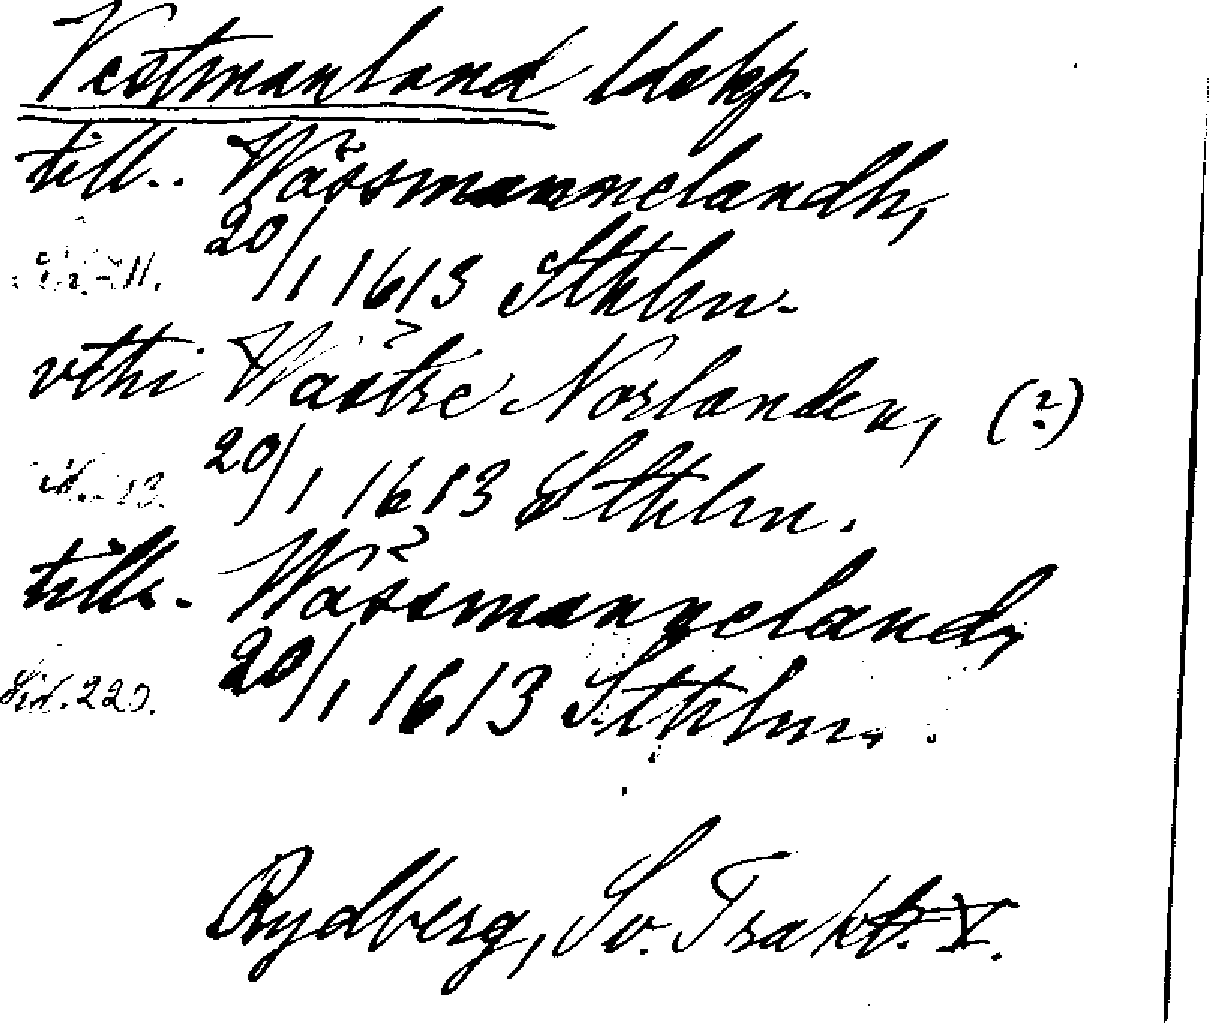 Vestmanland ldskp.
till.. Wåssmannelandh,
20/1 1613 Sthlm.
vthi Wåstre Norlanden, (?)
20/1 1613 Sthlm.
till. Wåssmanneland,
Sid. 220. 20/1 1613 Sthlm.
Rydberg, Sv. Trakt. V.